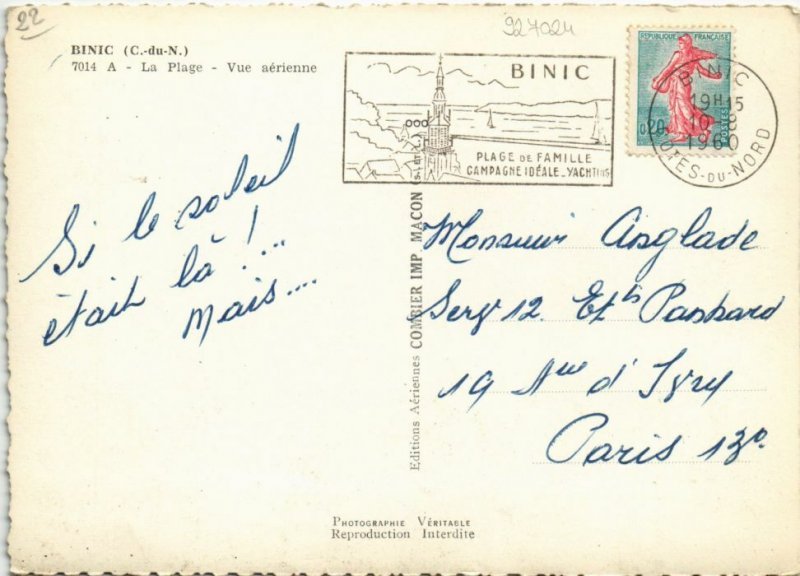 22
927024
BINIC (C.-du-N.)
7014 A - La Plage - Vue aérienne
BINIC
PLAGE DE FAMILLE
CAMPAGNE IDÉALE_YACHTING
REPUBLIQUE FRANÇAISE
0,20
POSTES
BINIC
19H15
10-8
1960
CÔTES-DU-NORD
Si le soleil
était là !...
Mais....
Editions Aériennes COMBIER IMP MACON (S. et L.)
Monsieur Anglade
Serv 12. Ets Panhard
19 Ave d'Ivry
Paris 13°
PHOTOGRAPHIE VÉRITABLE
Reproduction Interdite